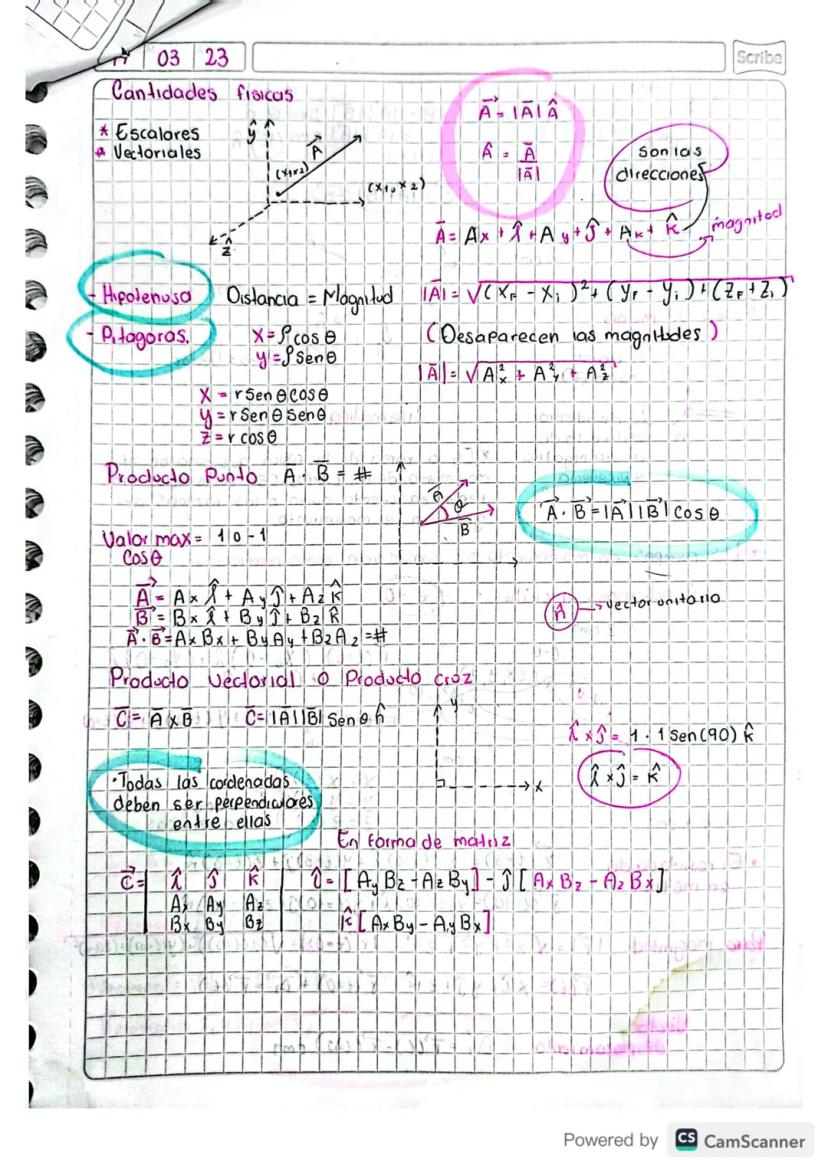 03 23
Scribe
Cantidades físicas
* Escalores
* Vectoriales
ŷ
A⃗
(x1x2)
(x1, x2)
ẑ
A⃗ = |A̅| Â
Â = A̅ / |A̅|
Son las
direcciones
A̅ = Ax + î + Ay + ĵ + Ak + k̂
magnitud
- Hipotenusa
Distancia = Magnitud
|A̅| = √(XF - Xi)² + (YF - Yi) + (ZF + Zi)
- Pitagoros.
x = ρ cos θ
y = ρ sen θ
(Desaparecen las magnitudes)
|A̅| = √A²x + A²y + A²z
x = r sen θ cos θ
y = r sen θ sen θ
z = r cos θ
Producto Punto A̅ · B̅ = #
A̅
θ
B̅
A⃗ · B⃗ = |A⃗| |B⃗| cos θ
Valor max = 1 o -1
cos θ
A⃗ = Ax î + Ay ĵ + Az k̂
B⃗ = Bx î + By ĵ + Bz k̂
A⃗ · B⃗ = AxBx + ByAy + BzAz = #
n̂ → vector unitario
Producto Vectorial o Producto cruz
C̅ = A̅ x B̅ C̅ = |A̅||B̅| sen θ n̂
y
x
î x ĵ = 1 · 1 Sen (90) k̂
î x ĵ = k̂
· Todas las cordenadas
deben ser perpendiculores
entre ellas
En forma de matriz
C⃗ = | î ĵ k̂ | î = [AyBz - AzBy] - ĵ [AxBz - AzBx]
Ax Ay Az
Bx By Bz
k̂ [AxBy - AyBx]
Powered by CS CamScanner